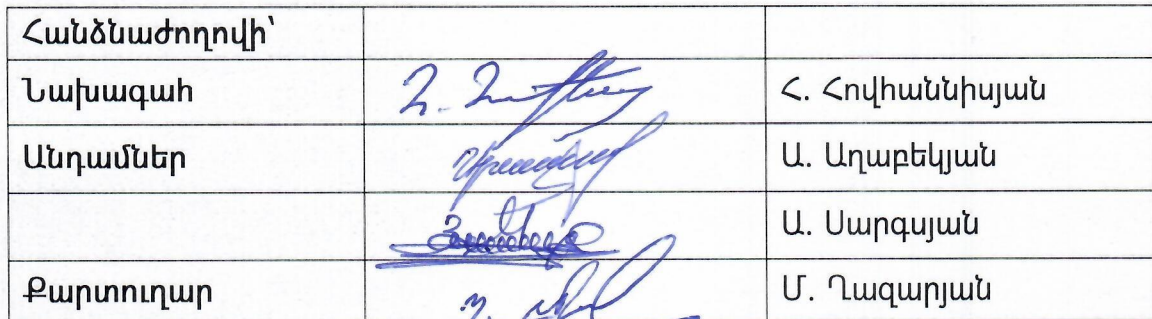 Հանձնաժողովի՝
Նախագահ Հ. Հովհաննիսյան
Անդամներ Ա. Աղաբեկյան
Ա. Սարգսյան
Քարտուղար Մ. Ղազարյան